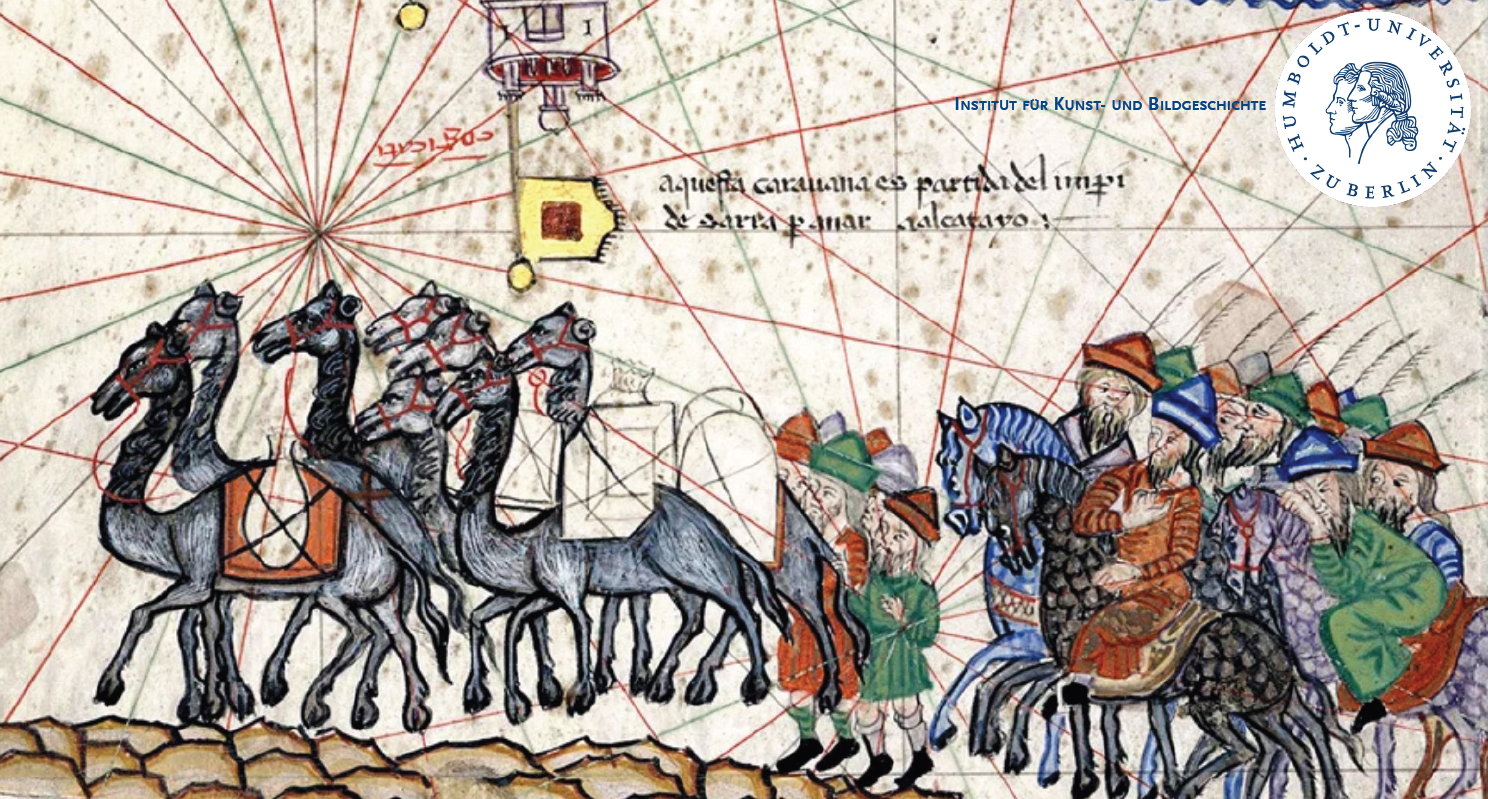 INSTITUT FÜR KUNST- UND BILDGESCHICHTE
HUMBOLDT-UNIVERSITÄT · ZU BERLIN ·
aquesta carauana es partida del imperi
de sarra per anar alcatayo :